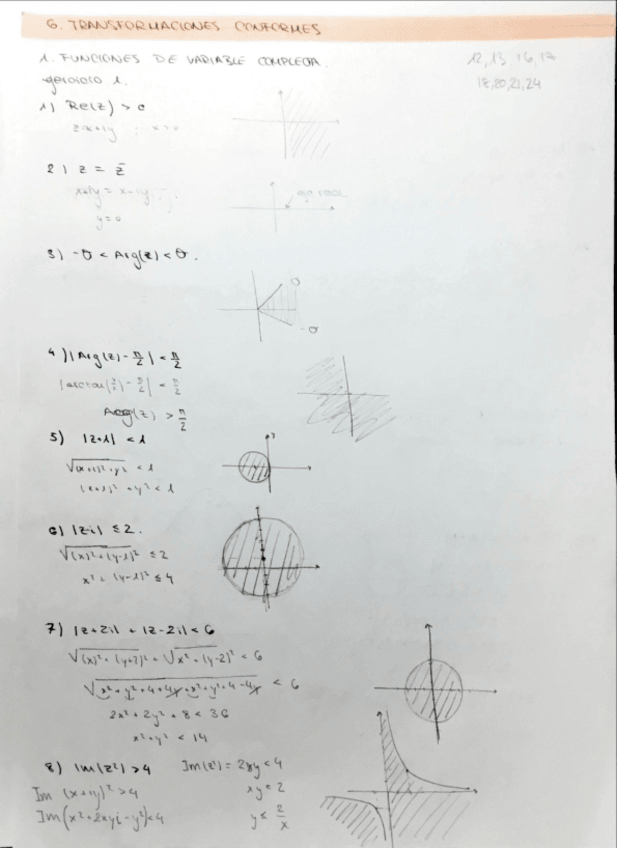 6. TRANSFORMACIONES CONFORMES
1. FUNCIONES DE VARIABLE COMPLEJA.
ejercicio 1.
12, 13, 16, 17
18, 20, 21, 24
1) Re(z) > 0
z = x+iy ; x > 0
2) z = z̄
x+iy = x-iy
y = 0
eje real
3) -θ < Arg(z) < θ.
θ
-θ
4) |Arg(z) - π/2| < π/2
|arctan(y/x) - π/2| < π/2
Arg(z) > π/2
5) |z+1| < 1
√((x+1)²+y²) < 1
(x+1)² + y² < 1
6) |z-i| ≤ 2.
√((x)²+(y-1)²) ≤ 2
x² + (y-1)² ≤ 4
7) |z+2i| + |z-2i| < 6
√((x)²+(y+2)²) + √(x²+(y-2)²) < 6
√(x²+y²+4+4y+x²+y²+4-4y) < 6
2x²+2y²+8 < 36
x²+y² < 14
8) Im(z²) > 4 Im(z²) = 2xy < 4
Im (x+iy)² > 4 xy < 2
Im(x²+2xyi-y²) < 4 y < 2/x